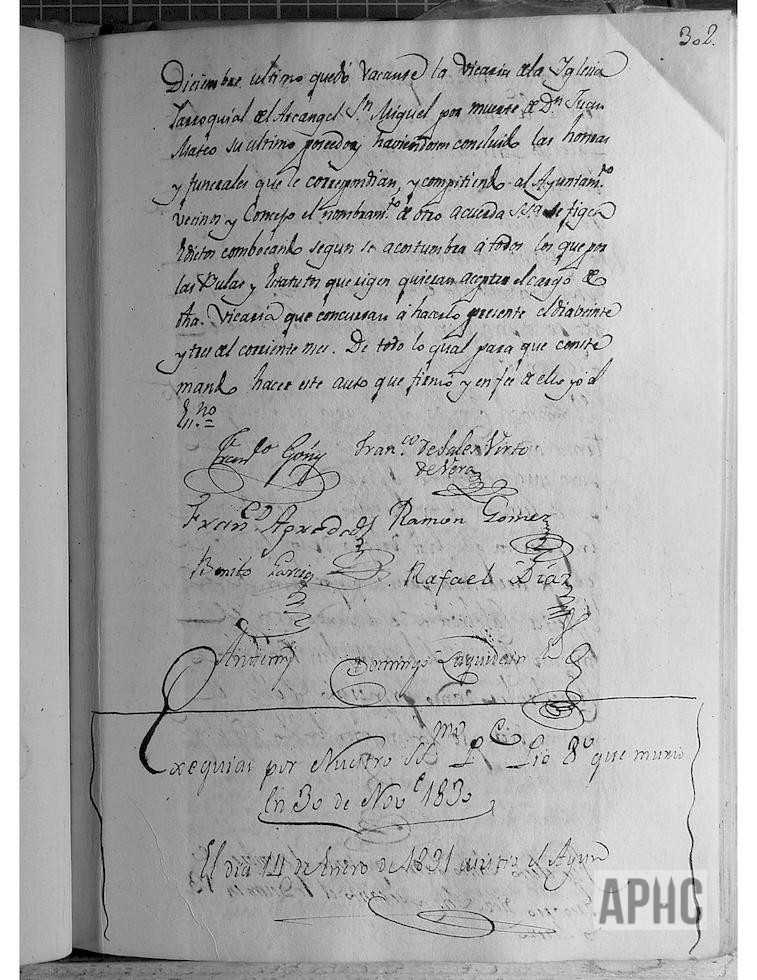 302.
Diciembre ultimo quedó vacante la Vicaria de la Iglesia
Parroquial del Arcangel Sn. Miguel por muerte de Dn. Juan
Mateo su ultimo poseedor, haviendose concluido las honras
y funerales que le correspondian, y compitiendo al Ayuntamto.
Vecinos y Concejo el nombramto. de otro acuerda se figen
Edictos combocando segun se acostumbra á todos los que por
las Bulas y Estatutos que rigen quieran aceptar el cargo de
dha. Vicaria que concurran á hacerlo presente el dia veinte
y tres del corriente mes. De todo lo qual para que conste
mando hacer este auto que firmó y en fee de ello yo el
Esno.
Goñy Franco. de Sales Virto
de Vera
Franco. Ramon Gomez
Benito Garcia Rafael Díaz
Antemi Domingo Laquidain
Exequias por Nuestro Smo. P. Pio 8º que murio
En 30 de Nove. 1830
El dia 14 de Enero de 1831 asistio el Ayunto
APHC